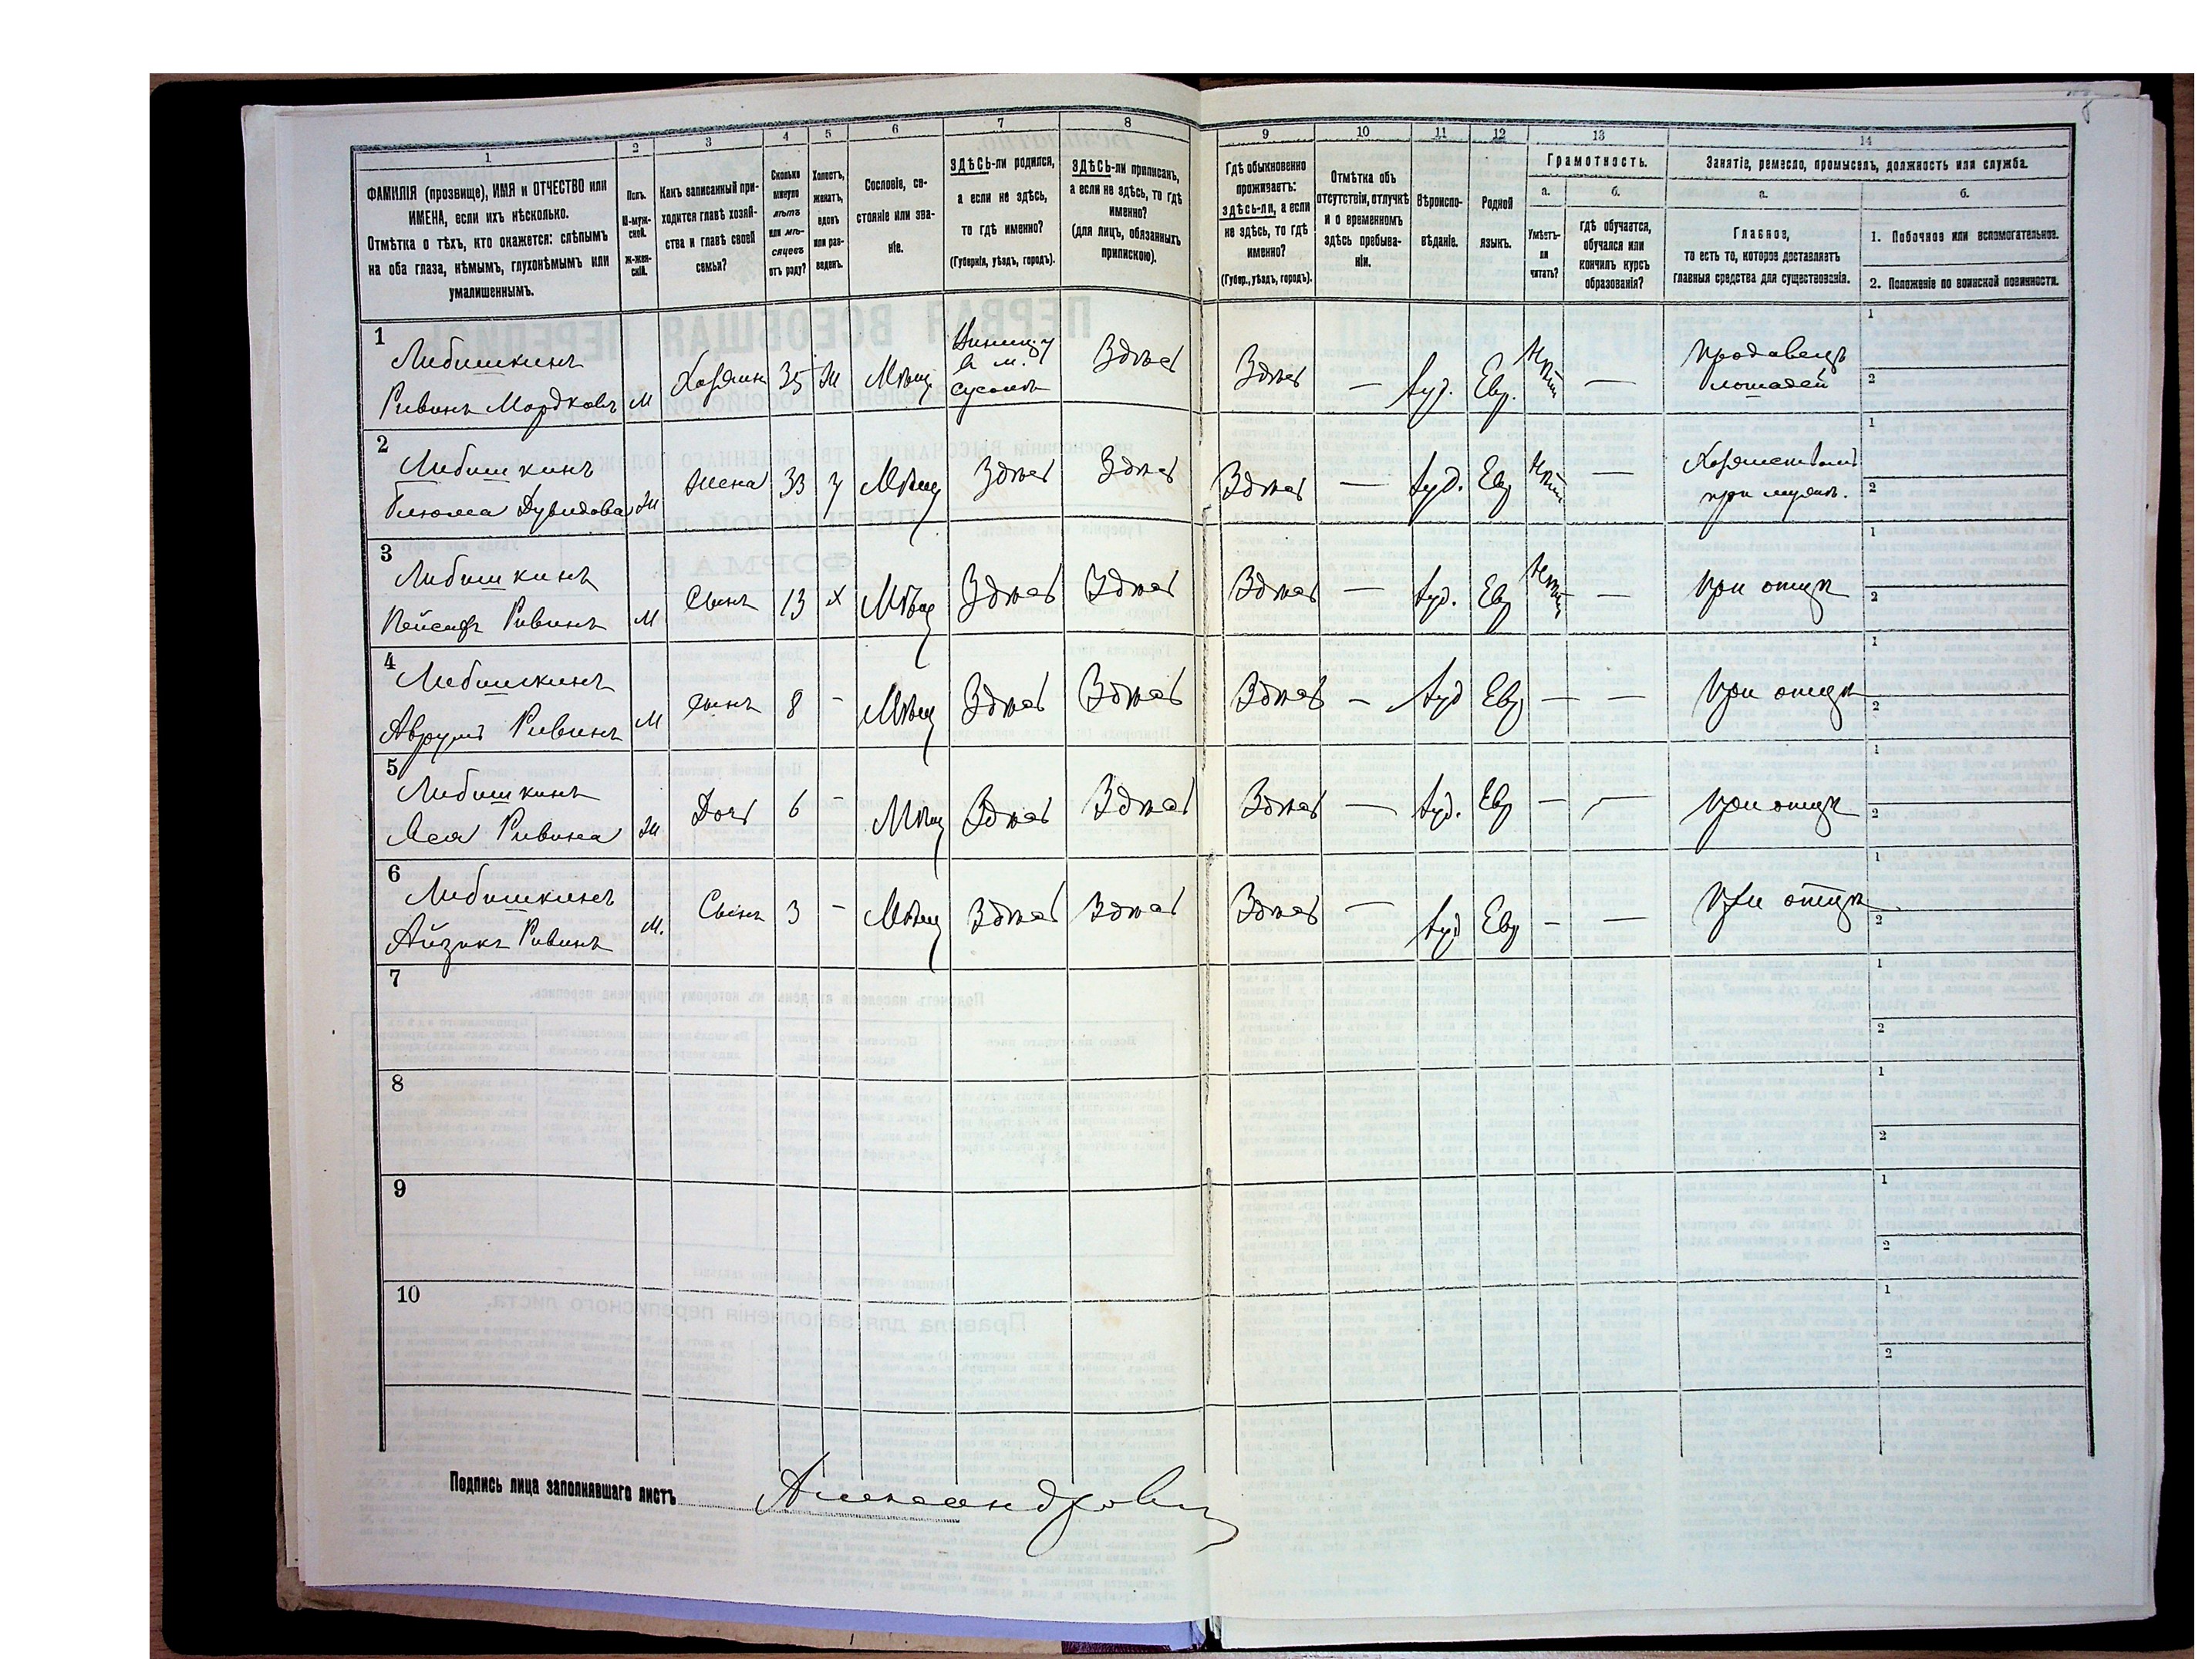 1 2 3 4 5 6 7 8 9 10 11 12 13 14
ФАМИЛІЯ (прозвище), ИМЯ и ОТЧЕСТВО или
ИМЕНА, если ихъ нѣсколько.
Отмѣтка о тѣхъ, кто окажется: слѣпымъ
на оба глаза, нѣмымъ, глухонѣмымъ или
умалишеннымъ.
Полъ.
М-муж-
ской.
Ж-жен-
скій.
Какъ записанный при-
ходится главѣ хозяй-
ства и главѣ своей
семьи?
Сколько
минуло
лѣтъ
или мѣ-
сяцевъ
отъ роду?
Холостъ,
женатъ,
вдовъ
или раз-
веденъ.
Сословіе, со-
стояніе или зва-
ніе.
ЗДѢСЬ-ли родился,
а если не здѣсь,
то гдѣ именно?
(Губернія, уѣздъ, городъ).
ЗДѢСЬ-ли приписанъ,
а если не здѣсь, то гдѣ
именно?
(для лицъ, обязанныхъ
припискою).
Гдѣ обыкновенно
проживаетъ:
здѣсь-ли, а если
не здѣсь, то гдѣ
именно?
(Губер., уѣздъ, городъ).
Отмѣтка объ
отсутствіи, отлучкѣ
и о временномъ
здѣсь пребыва-
ніи.
Вѣроиспо-
вѣданіе.
Родной
языкъ.
Грамотность.
а. б.
Умѣетъ-
ли
читать?
гдѣ обучается,
обучался или
кончилъ курсъ
образованія?
Занятіе, ремесло, промыселъ, должность или служба.
а. б.
Главное,
то есть то, которое доставляетъ
главныя средства для существованія.
1. Побочное или вспомогательное.
2. Положеніе по воинской повинности.
1
Либишкинъ
Ривинъ Мордковъ М Хозяинъ 35 Ж Мѣщ.
в м.
Здѣсь Здѣсь — Іуд. Евр. Нѣтъ —
продавецъ
лошадей
1
2
2
Либишкинъ
Блюма Дувидова Ж Жена 33 З Мѣщ Здѣсь Здѣсь Здѣсь — Іуд. Евр Нѣтъ —
при мужѣ.
1
2
3
Либишкинъ
Пейсахъ Ривинъ М Сынъ 13 х Мѣщ Здѣсь Здѣсь Здѣсь — Іуд. Евр Нѣтъ — При отцѣ
1
2
4
Либишкинъ
Аврумъ Ривинъ М Сынъ 8 - Мѣщ Здѣсь Здѣсь Здѣсь — Іуд Евр — — При отцѣ
1
2
5
Либишкинъ
Лея Ривина Ж Дочь 6 - Мѣщ Здѣсь Здѣсь Здѣсь — Іуд. Евр — — При отцѣ
1
2
6
Либишкинъ
Айзикъ Ривинъ М. Сынъ 3 - Мѣщ Здѣсь Здѣсь Здѣсь — Іуд Евр — — При отцѣ
1
2
7
1
2
8
1
2
9
1
2
10
1
2
Подпись лица заполнявшаго листъ